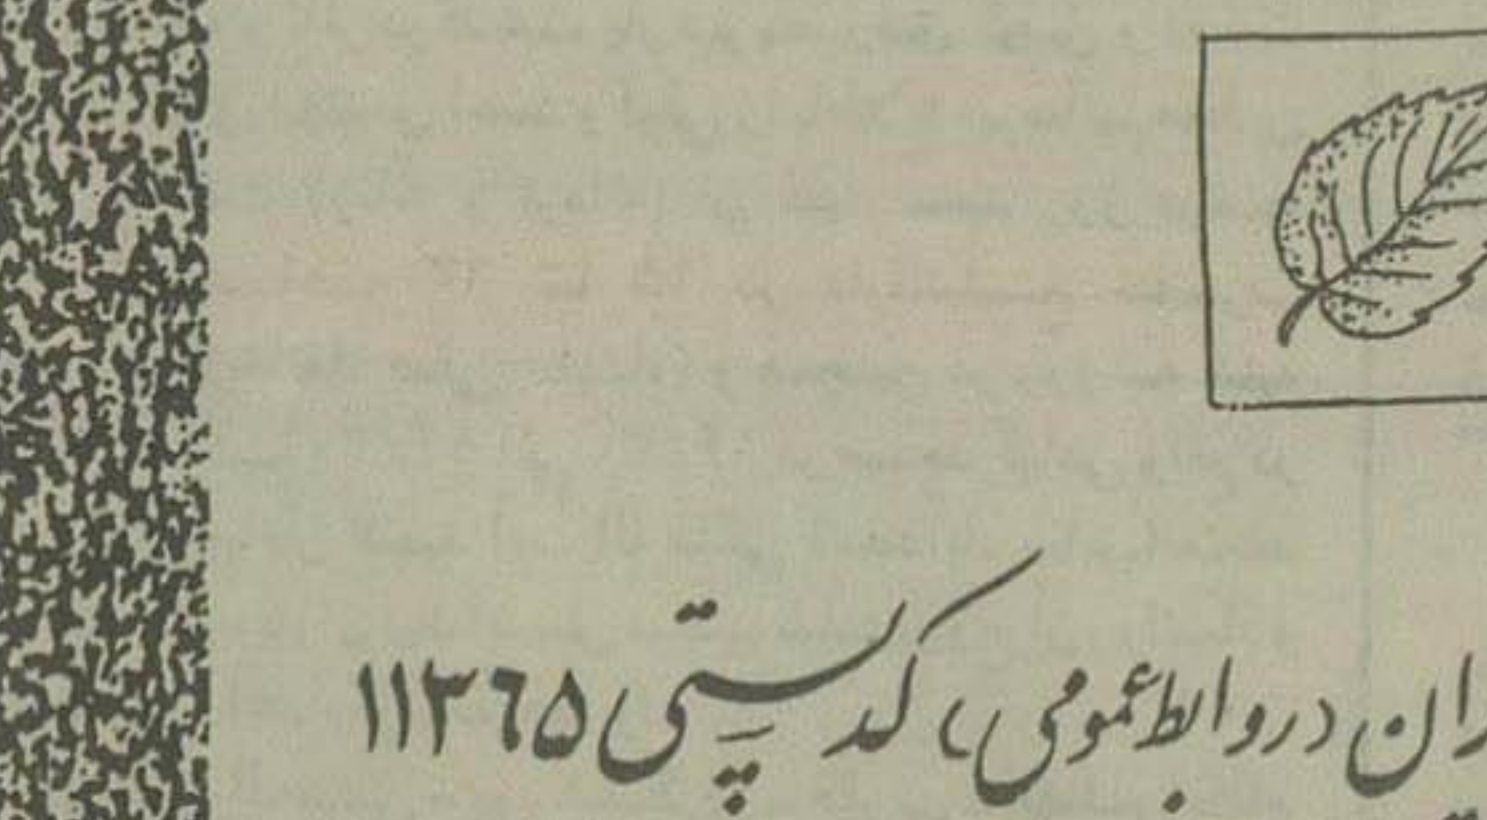 ران در روابط عمومی، کد پستی ۱۱۳۶۵